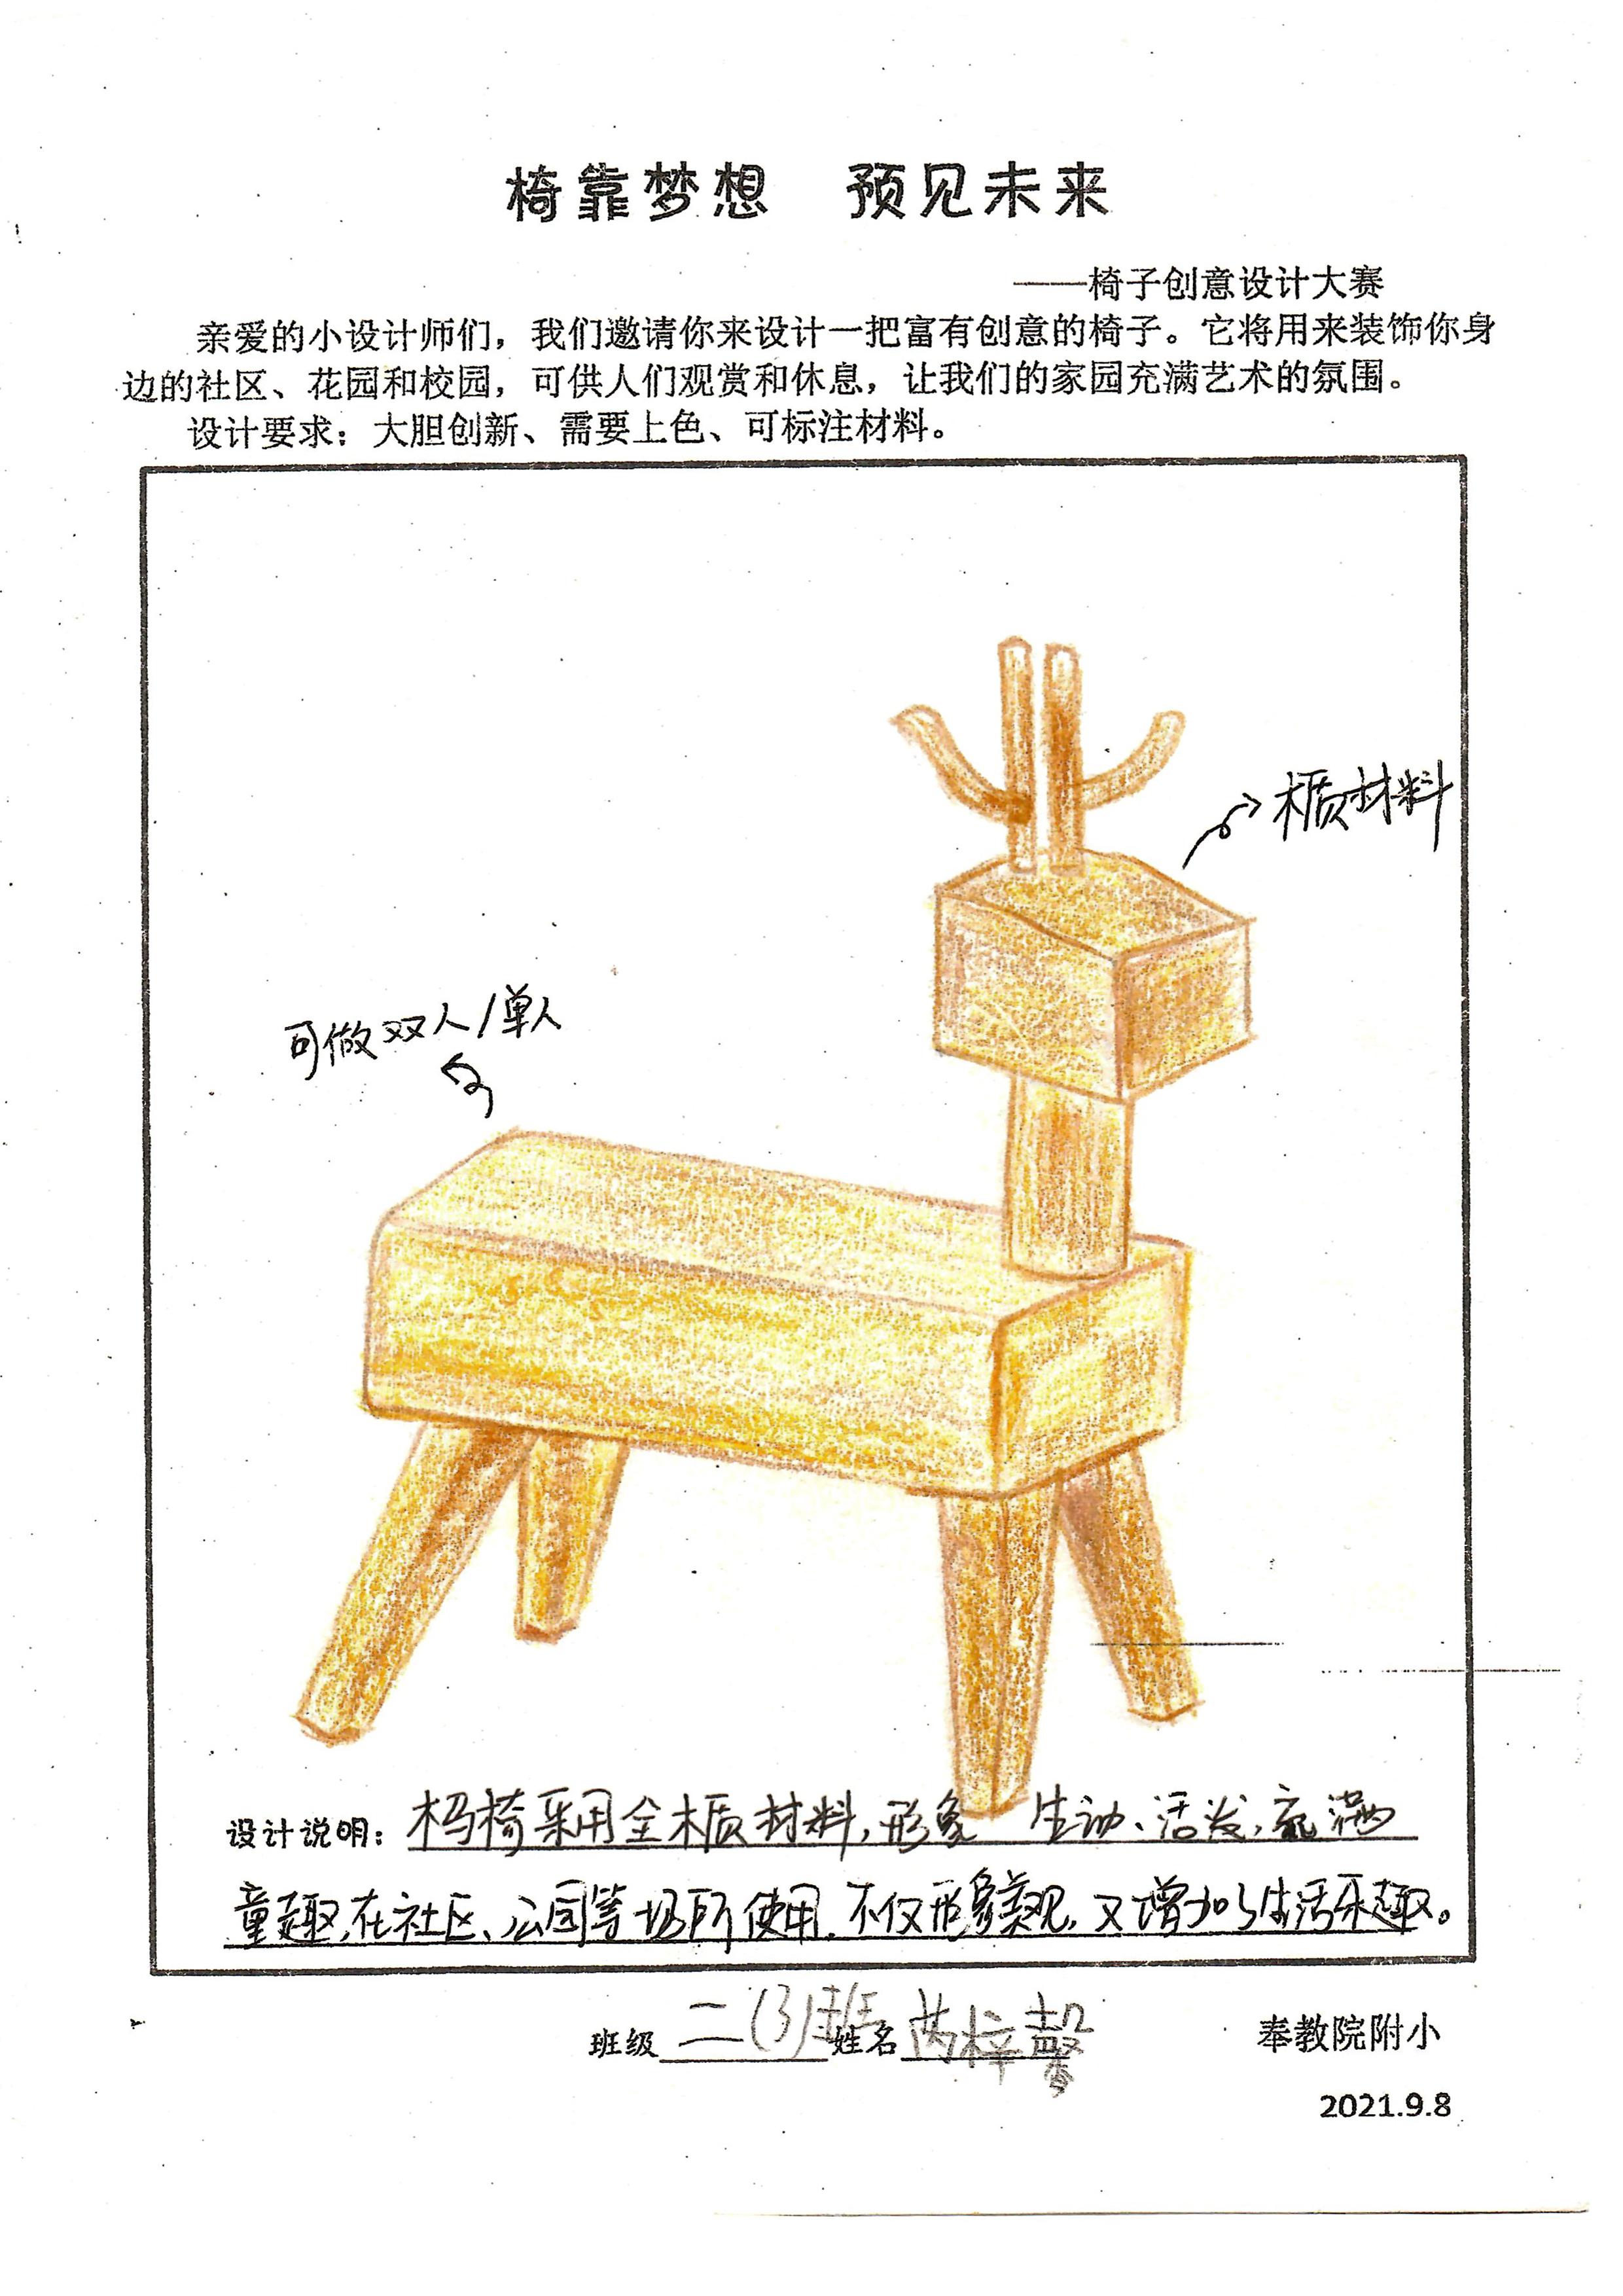 椅靠梦想 预见未来
——椅子创意设计大赛
亲爱的小设计师们，我们邀请你来设计一把富有创意的椅子。它将用来装饰你身
边的社区、花园和校园，可供人们观赏和休息，让我们的家园充满艺术的氛围。
设计要求：大胆创新、需要上色、可标注材料。
木质材料
可做双人/单人
设计说明：木马椅采用全木质材料，形象 生动、活泼，充满
童趣，在社区、公园等场所使用，不仅形象美观，又增加了生活乐趣。
班级 二(3)班 姓名 梓馨 奉教院附小
2021.9.8